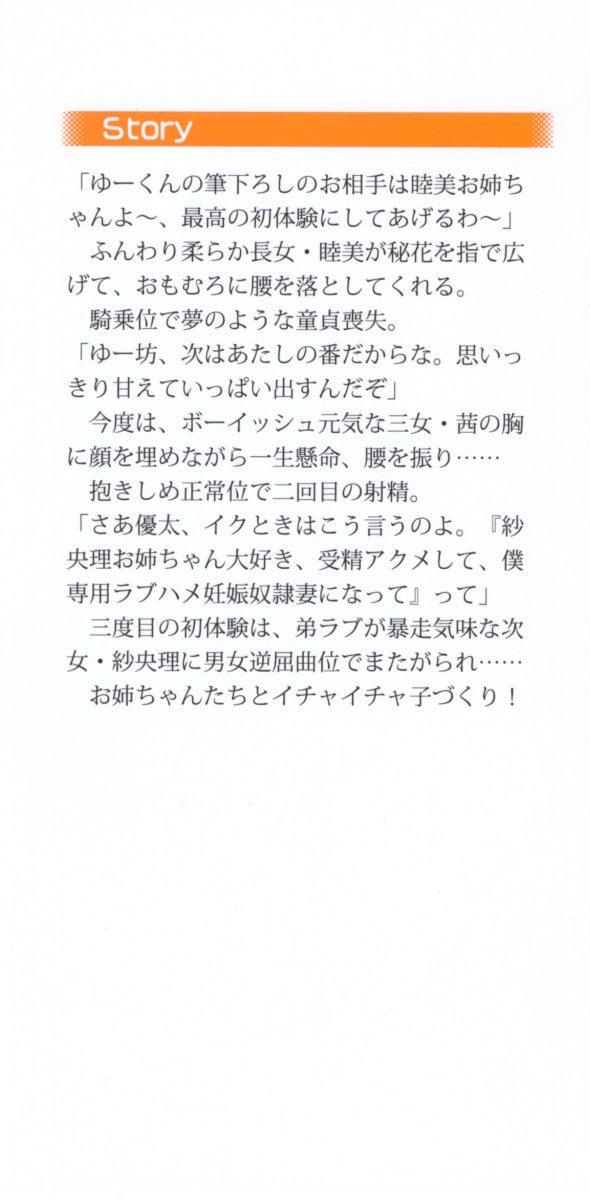 Story
「ゆーくんの筆下ろしのお相手は睦美お姉ち
ゃんよ〜、最高の初体験にしてあげるわ〜」
　ふんわり柔らか長女・睦美が秘花を指で広
げて、おもむろに腰を落としてくれる。
　騎乗位で夢のような童貞喪失。
「ゆー坊、次はあたしの番だからな。思いっ
きり甘えていっぱい出すんだぞ」
　今度は、ボーイッシュ元気な三女・茜の胸
に顔を埋めながら一生懸命、腰を振り……
　抱きしめ正常位で二回目の射精。
「さあ優太、イクときはこう言うのよ。『紗
央理お姉ちゃん大好き、受精アクメして、僕
専用ラブハメ妊娠奴隷妻になって』って」
　三度目の初体験は、弟ラブが暴走気味な次
女・紗央理に男女逆屈曲位でまたがられ……
　お姉ちゃんたちとイチャイチャ子づくり！